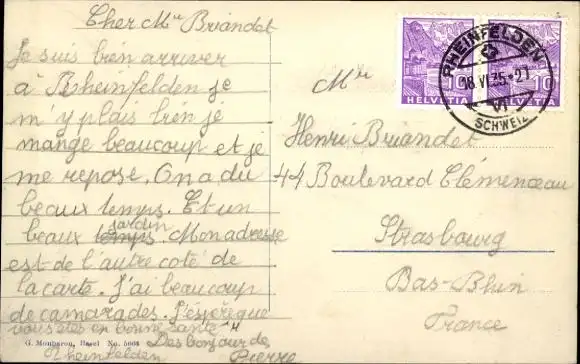 Cher Mr Briandet
Je suis bien arriver
à Rheinfelden je
m'y plais bien je
mange beaucoup et je
me repose. On a du
beaux temps. Et un
beaux temps jardin. Mon adresse
est de l'autre coté de
la carte. J'ai beaucoup
de camarades. J'espère que
vous êtes en bonne santé
Des bonjour de
Rheinfelden
Pierre
G. Mombaron, Basel No. 5603
RHEINFELDEN
18.VI.35.-21
VI
SCHWEIZ
10 10
HELVETIA HELVETIA
Mr
Henri Briandet
44 Boulevard Clémenceau
Strasbourg
Bas-Rhin
France